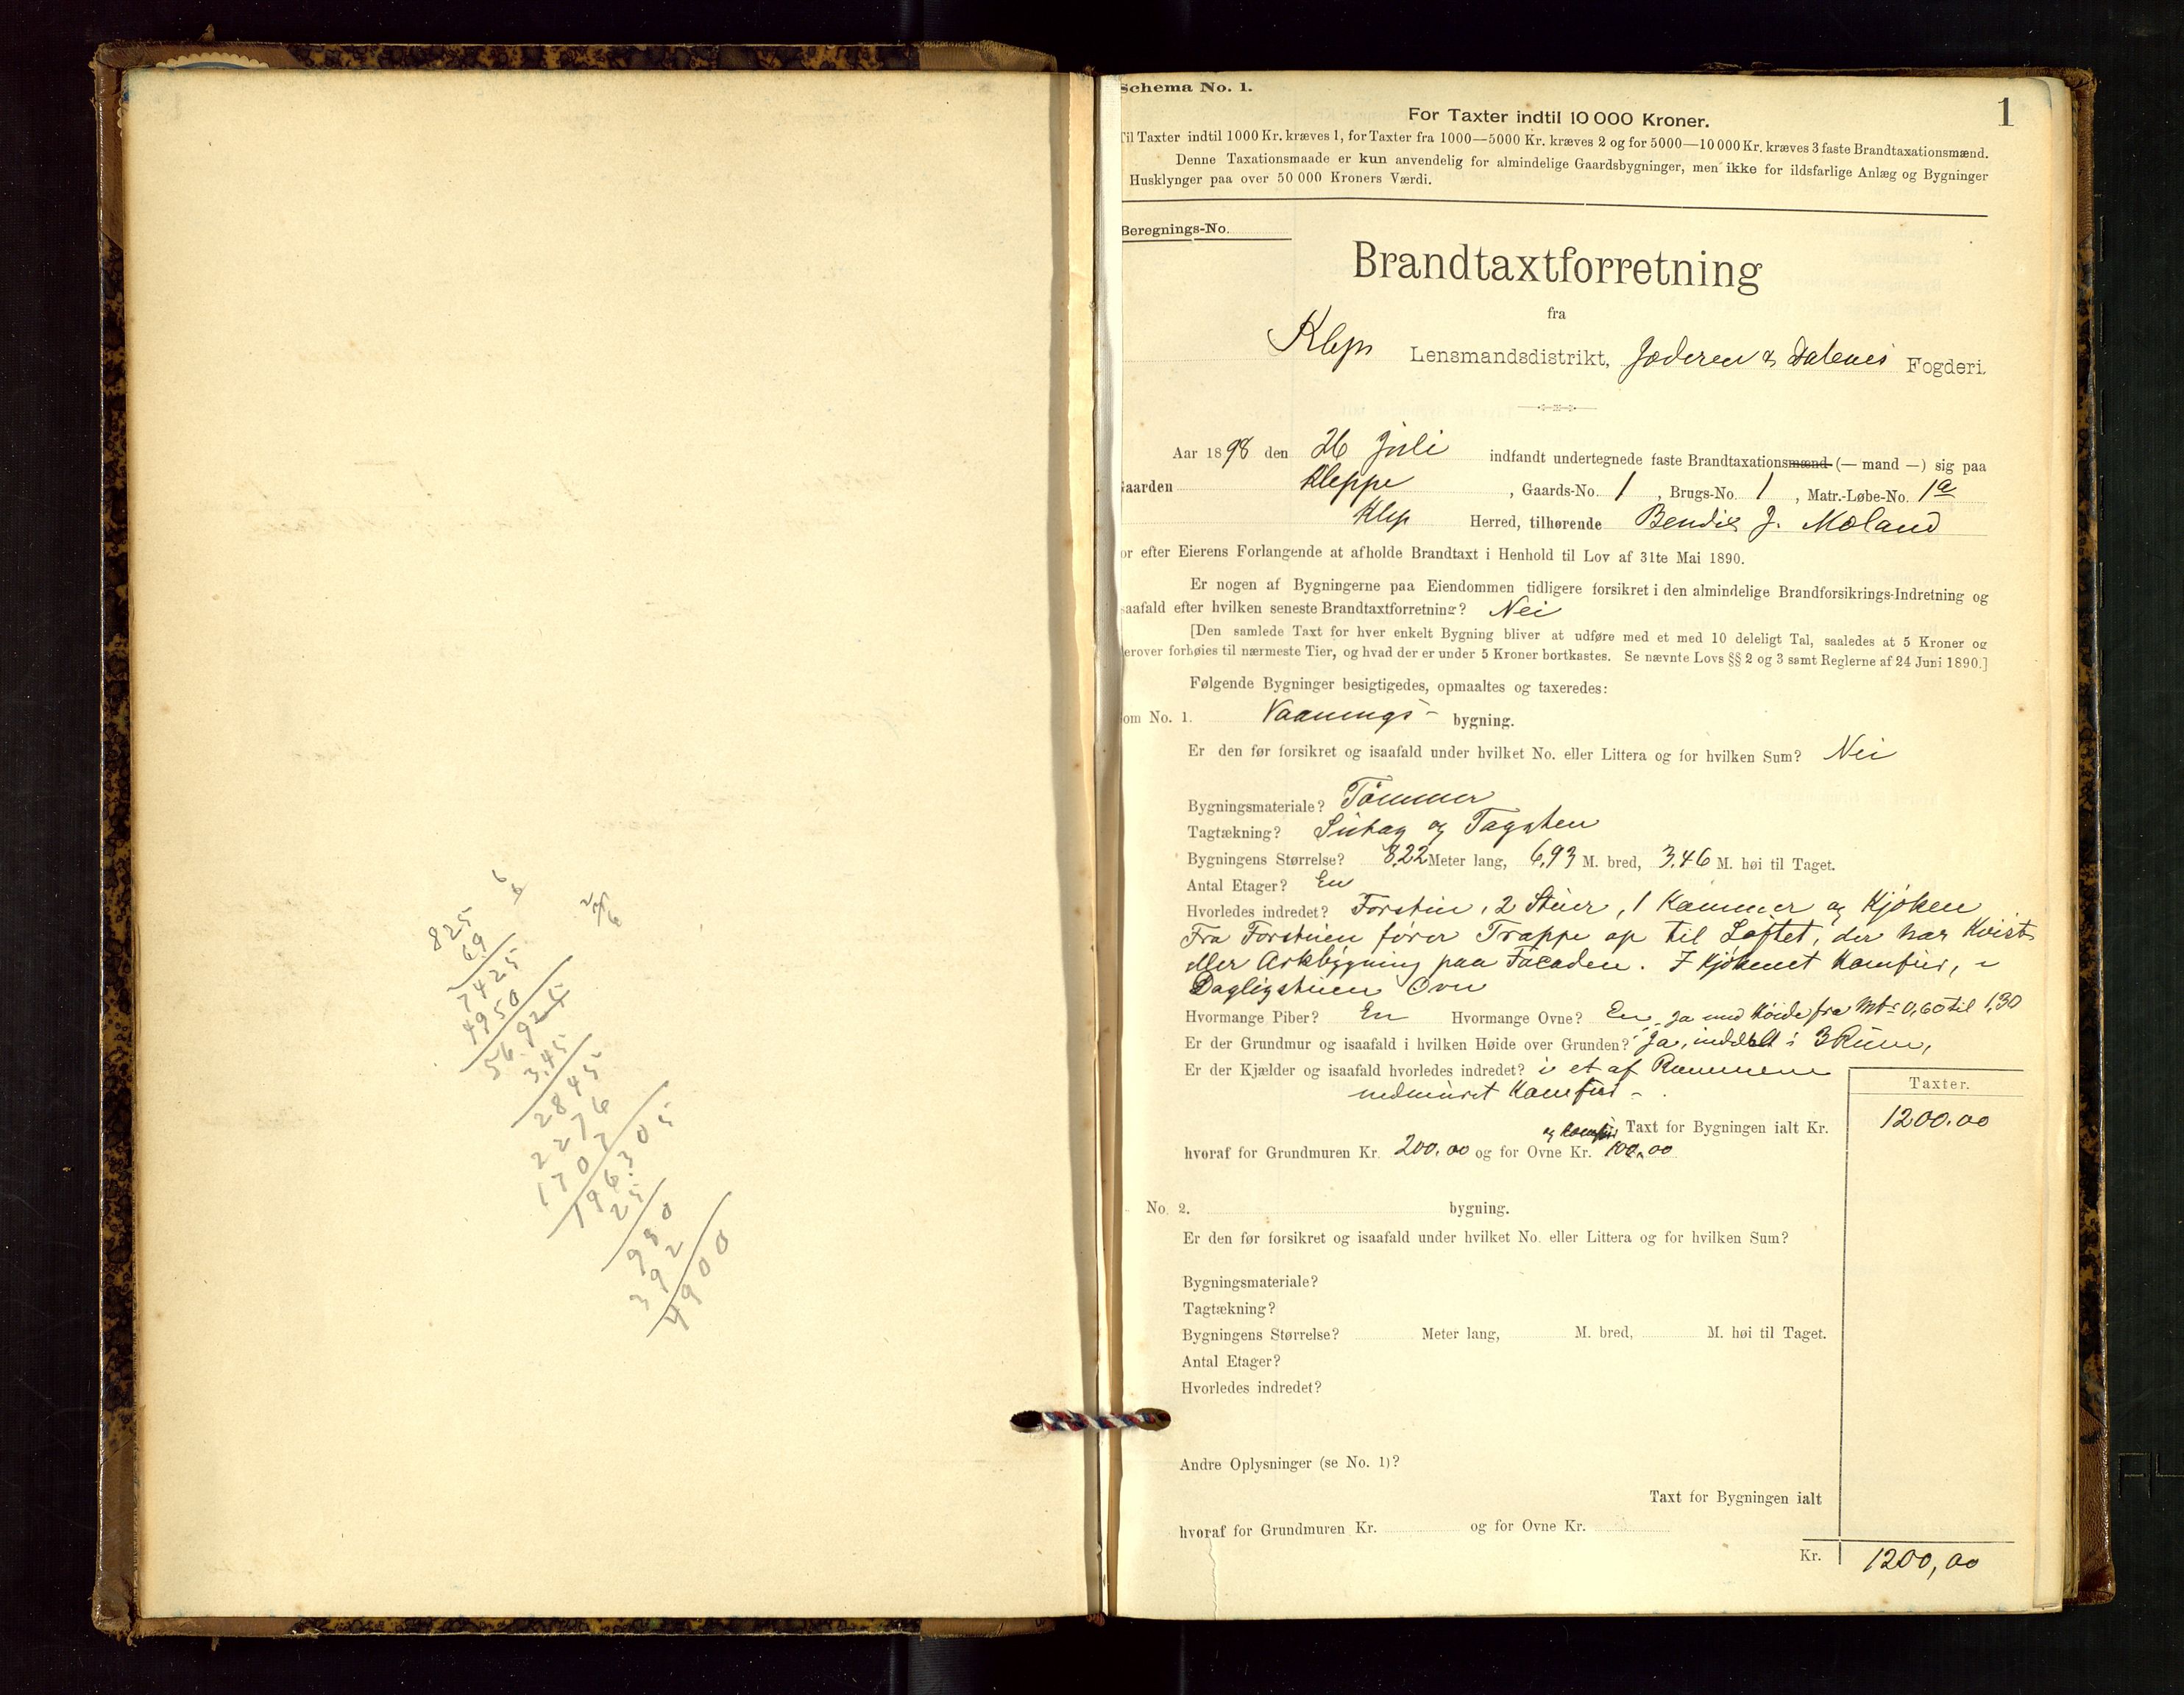 825
69
7425
4950
56.925
3.45
2845
2276
1707
196.305
25
980
392
4900
Schema No. 1.
1
For Taxter indtil 10 000 Kroner.
Til Taxter indtil 1000 Kr. kræves 1, for Taxter fra 1000—5000 Kr. kræves 2 og for 5000—10 000 Kr. kræves 3 faste Brandtaxationsmænd.
Denne Taxationsmaade er kun anvendelig for almindelige Gaardsbygninger, men ikke for ildsfarlige Anlæg og Bygninger
Husklynger paa over 50 000 Kroners Værdi.
Beregnings-No.
Brandtaxtforretning
fra
Klep Lensmandsdistrikt, Jæderen & Dalenes Fogderi.
Aar 1898 den 26 Juli indfandt undertegnede faste Brandtaxationsmænd (— mand —) sig paa
Gaarden Kleppe, Gaards-No. 1, Brugs-No. 1, Matr.-Løbe-No. 1a
Klep Herred, tilhørende Bendix J. Moland
or efter Eierens Forlangende at afholde Brandtaxt i Henhold til Lov af 31te Mai 1890.
Er nogen af Bygningerne paa Eiendommen tidligere forsikret i den almindelige Brandforsikrings-Indretning og
saafald efter hvilken seneste Brandtaxtforretning? Nei
[Den samlede Taxt for hver enkelt Bygning bliver at udføre med et med 10 deleligt Tal, saaledes at 5 Kroner og
erover forhøies til nærmeste Tier, og hvad der er under 5 Kroner bortkastes. Se nævnte Lovs §§ 2 og 3 samt Reglerne af 24 Juni 1890.]
Følgende Bygninger besigtigedes, opmaaltes og taxeredes:
om No. 1. Vaanings- bygning.
Er den før forsikret og isaafald under hvilket No. eller Littera og for hvilken Sum? Nei
Bygningsmateriale? Tømmer
Tagtækning? Sutag og Tagsten
Bygningens Størrelse? 8,22 Meter lang, 6,93 M. bred, 3,46 M. høi til Taget.
Antal Etager? En
Hvorledes indredet? Forstue, 2 Stuer, 1 Kammer og Kjøken
Fra Forstuen fører Trappe op til Loftet, der har Kvist
eller Arkbygning paa Facaden. I Kjøkenet Komfur, i
Dagligstuen Ovn
Hvormange Piber? En Hvormange Ovne? En
Er der Grundmur og isaafald i hvilken Høide over Grunden? Ja med Høide fra Mtr 0,60 til 1,30
Er der Kjælder og isaafald hvorledes indredet? Ja, inddelt i 3 Rum,
i et af Rummene
nedmuret Komfur -
Taxter.
Taxt for Bygningen ialt Kr. 1200.00
hvoraf for Grundmuren Kr. 200.00 og for Ovne og Komfur Kr. 100.00
No. 2. bygning.
Er den før forsikret og isaafald under hvilket No. eller Littera og for hvilken Sum?
Bygningsmateriale?
Tagtækning?
Bygningens Størrelse? Meter lang, M. bred, M. høi til Taget.
Antal Etager?
Hvorledes indredet?
Andre Oplysninger (se No. 1)?
Taxt for Bygningen ialt
hvoraf for Grundmuren Kr. og for Ovne Kr.
Kr. 1200,00